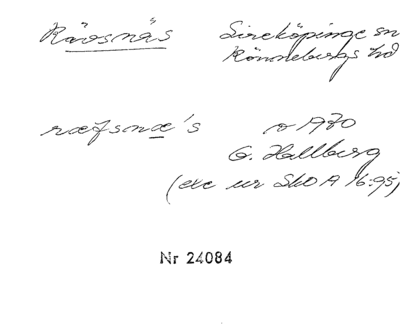 Rävsnäs Sireköpinge sn
Rönnebergs hd
ræfsnæ's o 1970
G. Hallberg
(exc ur SkO A 16:95)
Nr 24084